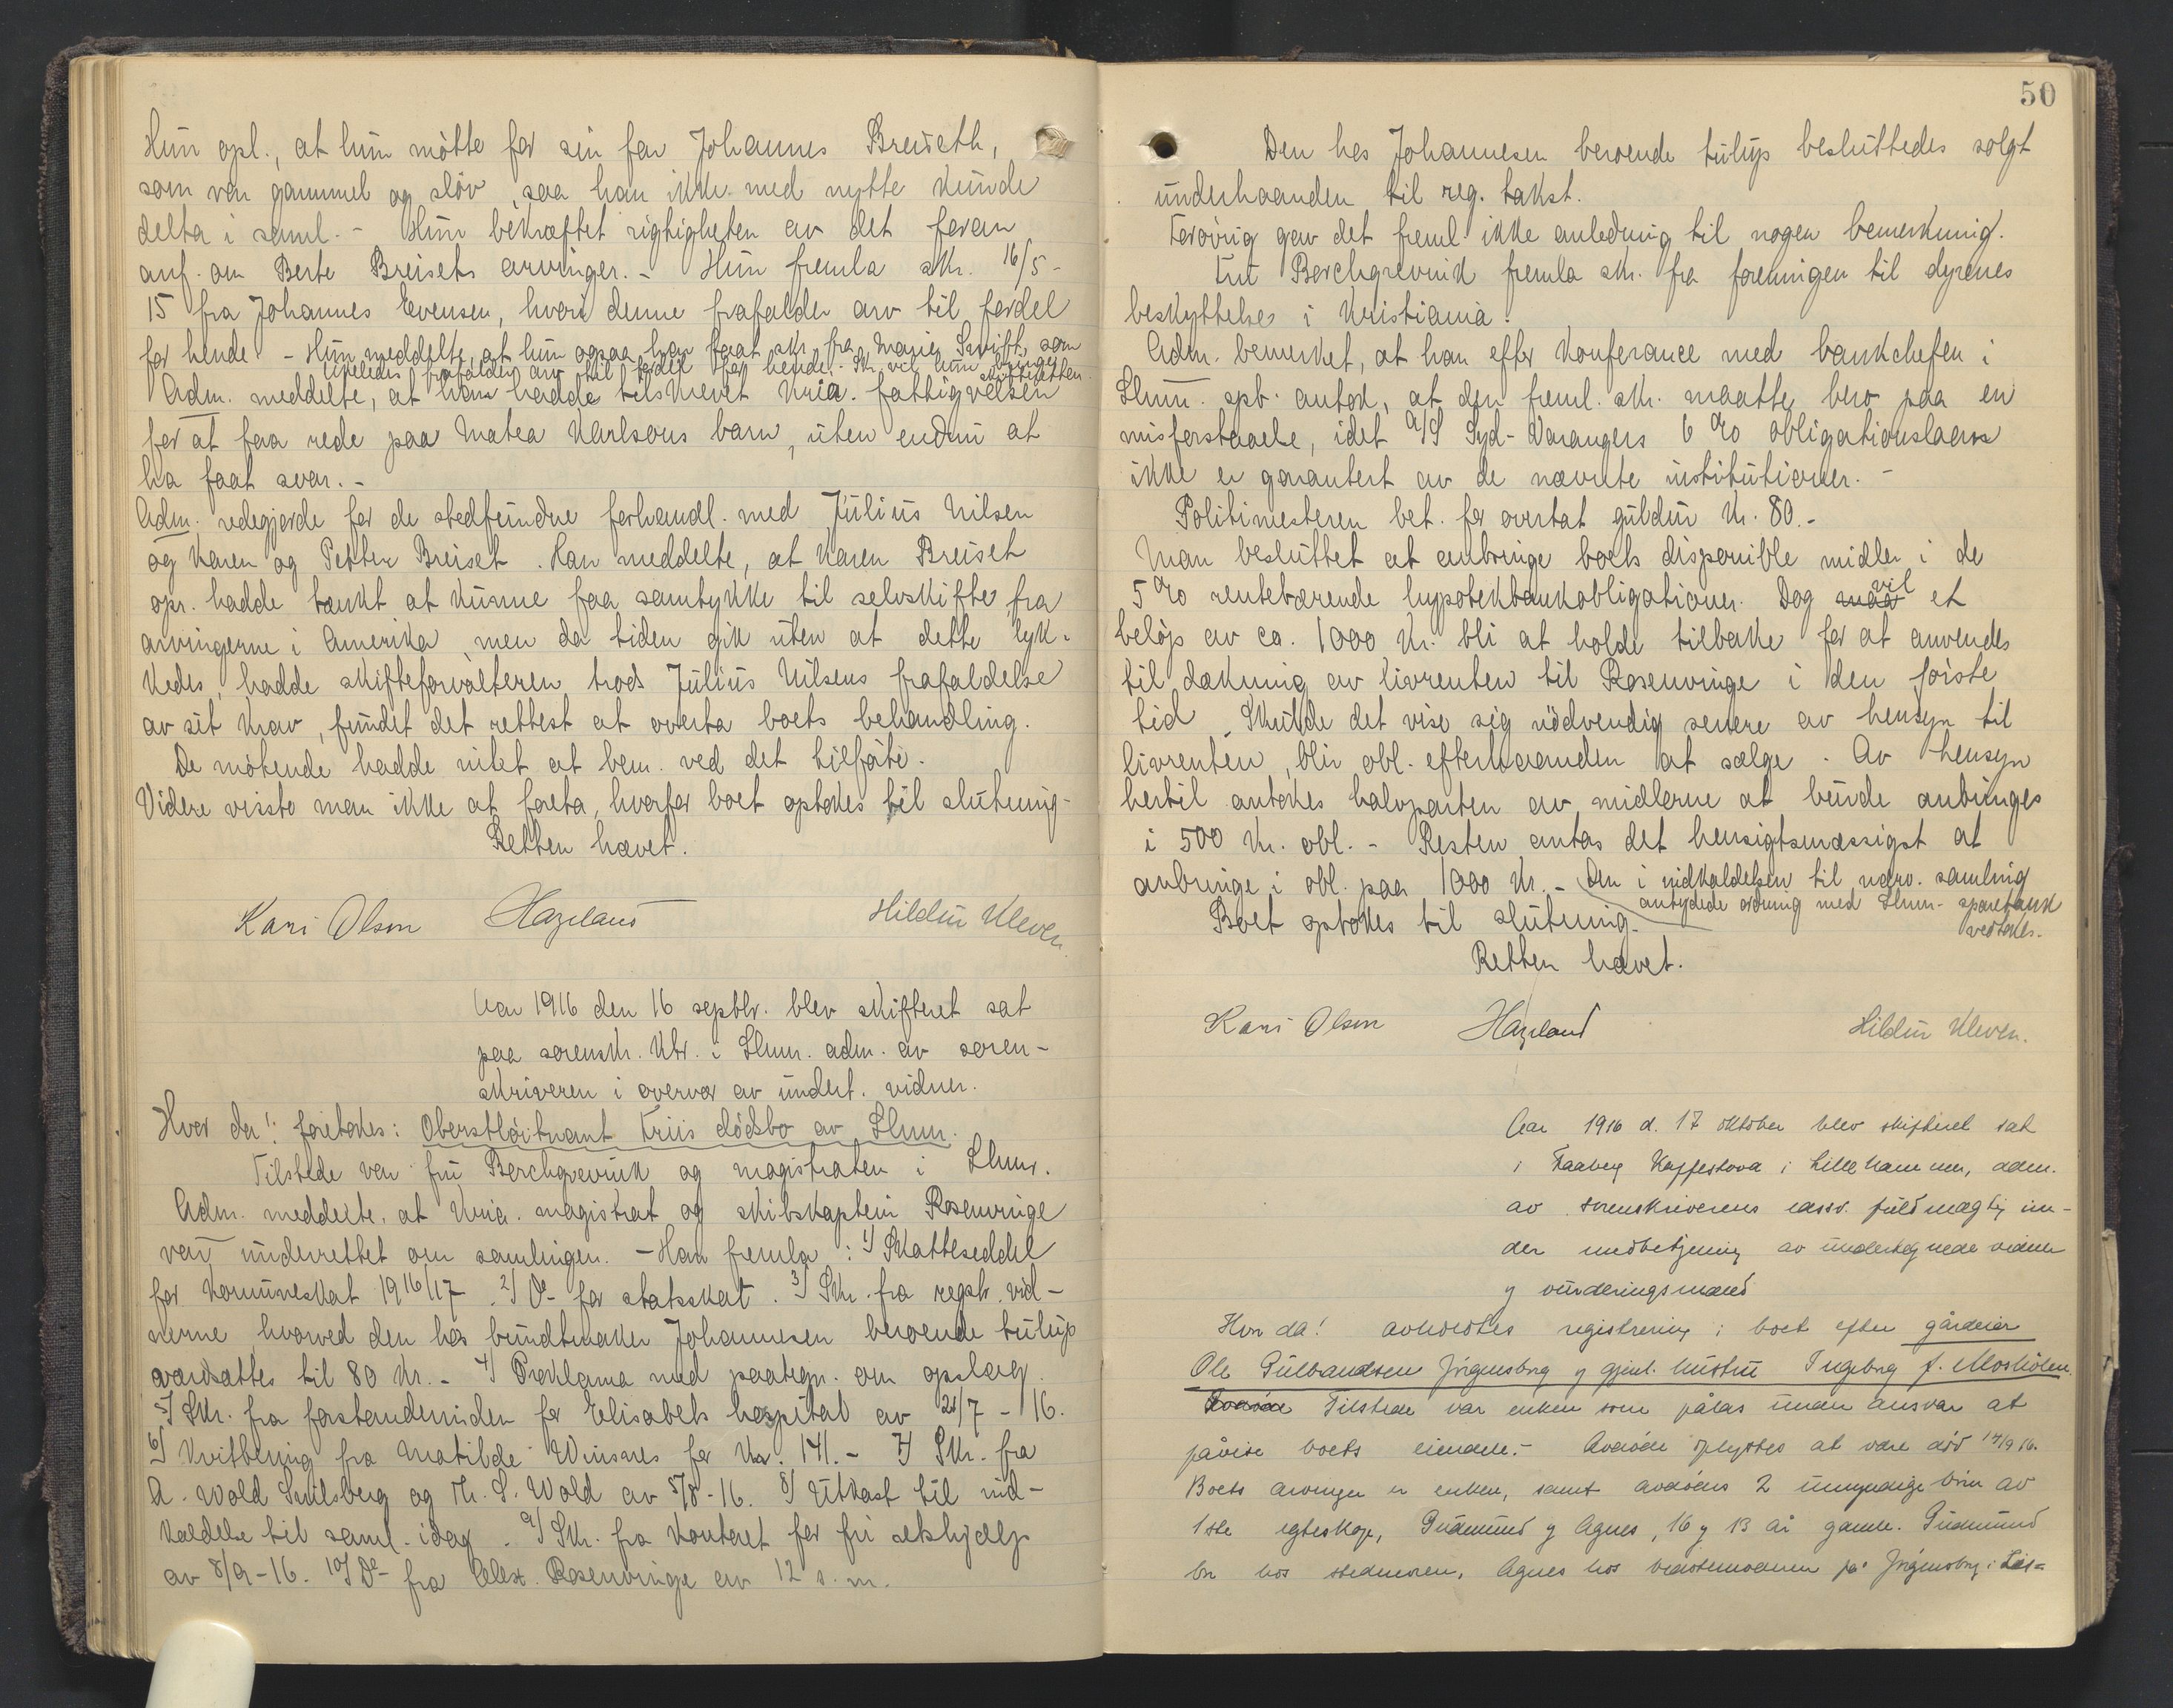 Hun opl., at hun møtte for sin far Johannes Breiseth,
som var gammel og sløv, saa han ikke med nytte kunde
delta i saml. - Hun bekræftet rigtigheten av det foran
anf. om Berte Breisets arvinger. - Hun fremla skr. 16/5-
15 fra Johannes Evensen, hvori denne frafalder arv til fordel
for hende. - Hun meddelte, at hun ogsaa har faat skr. fra Marie Swift, som
likeledes frafalder arv til fordel for hende. Skr. vil hun bringe
skifteretten.
Adm. meddelte, at han hadde tilskrevet Kria. fattigvæsen
for at faa rede paa Matea Karlsons barn, uten endnu at
ha faat svar. -
Adm. redegjorde for de stedfundne forhandl. med Julius Nilsen
og Karen og Petter Breiset. Han meddelte, at Karen Breiset
opr. hadde tænkt at kunne faa samtykke til selvskifte fra
arvingerne i Amerika, men da tiden gik uten at dette lyk-
kedes, hadde skifteforvalteren trods Julius Nilsens frafaldelse
av sit krav, fundet det rettest at overta boets behandling.
De møtende hadde intet at bem. ved det tilførte.
Videre visste man ikke at foreta, hvorfor boet optokes til slutning.
Retten hævet.
Kari Olson Hazeland Hildur Kleven.
Aar 1916 den 16 septbr. blev skifteret sat
paa sorenskr. ktr. i Lhmr. adm. av soren-
skriveren i overvær av undert. vidner.
Hvor da! foretokes: Oberstløitnant Friis dødsbo av Lhmr.
Tilstede var fru Borchgrevink og magistraten i Lhmr.
Adm. meddelte, at Kria. magistrat og skibskaptein Rosenvinge
var underrettet om samlingen. - Han fremla: 1/ Skatteseddel
for kommuneskat 1916/17. 2/ Do- for statsskat. 3/ Skr. fra registr. vid-
nerne hvorved den hos buntmaker Johannesen beroende tulup
værdsattes til 80 kr. - 4/ Proklama med paategn. om opslag.
5/ Skr. fra forstanderinden for Elisabets hospital av 21/7 - 16.
6/ Kvittering fra Matilde Winsnes for kr. 141. - 7/ Skr. fra
A. Wold Snilsberg og Th. S. Wold av 5/8-16. 8/ Utkast til ind-
kaldelse til saml. idag. 9/ Skr. fra kontoret for fri retshjælp
av 8/9-16. 10/ Do- fra Alex. Rosenvinge av 12 s. m.
50
Den hos Johannesen beroende tulup besluttedes solgt
underhaanden til reg. takst.
Forøvrig gav det freml. ikke anledning til nogen bemerkning.
Fru Borchgrevink fremla skr. fra foreningen til dyrenes
beskyttelse i Kristiania.
Adm. bemerket, at han efter konferance med bankchefen i
Lhmr. spb. antok, at den freml. skr. maatte bero paa en
misforstaaelse, idet A/S Syd-Varangers 6 % obligationslaan
ikke er garantert av de nævnte institutioner. -
Politimesteren bet. for overtat guldur kr. 80.-
Man besluttet at anbringe boets disponible midler i de
5 % rentebærende hypotekbankobligationer. Dog maa vil et
beløp av ca. 1000 kr. bli at holde tilbake for at anvendes
til dækning av livrenten til Rosenvinge i den første
tid. Skulde det vise sig nødvendig senere av hensyn til
livrenten, blir obl. efterhaanden at sælge. Av hensyn
hertil antokes halvparten av midlerne at burde anbringes
i 500 kr. obl. - Resten antas det hensigtsmæssigst at
anbringe i obl. paa 1000 kr. - Den i indkaldelsen til nærv. samling
antydede ordning med Lhmr. sparebank
vedtokes.
Boet optokes til slutning.
Retten hævet.
Kari Olson Hazeland Hildur Kleven.
Aar 1916 d. 17 oktober blev skifteret sat
i Faaberg Kaffestova i Lillehammer, adm.
av sorenskriverens edssv. fuldmægtig un-
der medbetjening av undertegnede vidner
og vurderingsmænd
Hvor da! avholdtes registrering i boet efter gårdeier
Ole Gulbrandsen Jørgensborg og gjenl. hustru Ingeborg f. Moshølen.
Tilstede var enken som pålas under ansvar at
påvise boets eiendele. - Avdøde oplystes at være død 14/9 16.
Boets arvinger er enken, samt avdødes 2 umyndige børn av
1ste egteskap, Gudmund og Agnes, 16 og 13 år gamle. Gudmund
bor hos stedmoren, Agnes hos bedstemoderen på Jørgensborg i